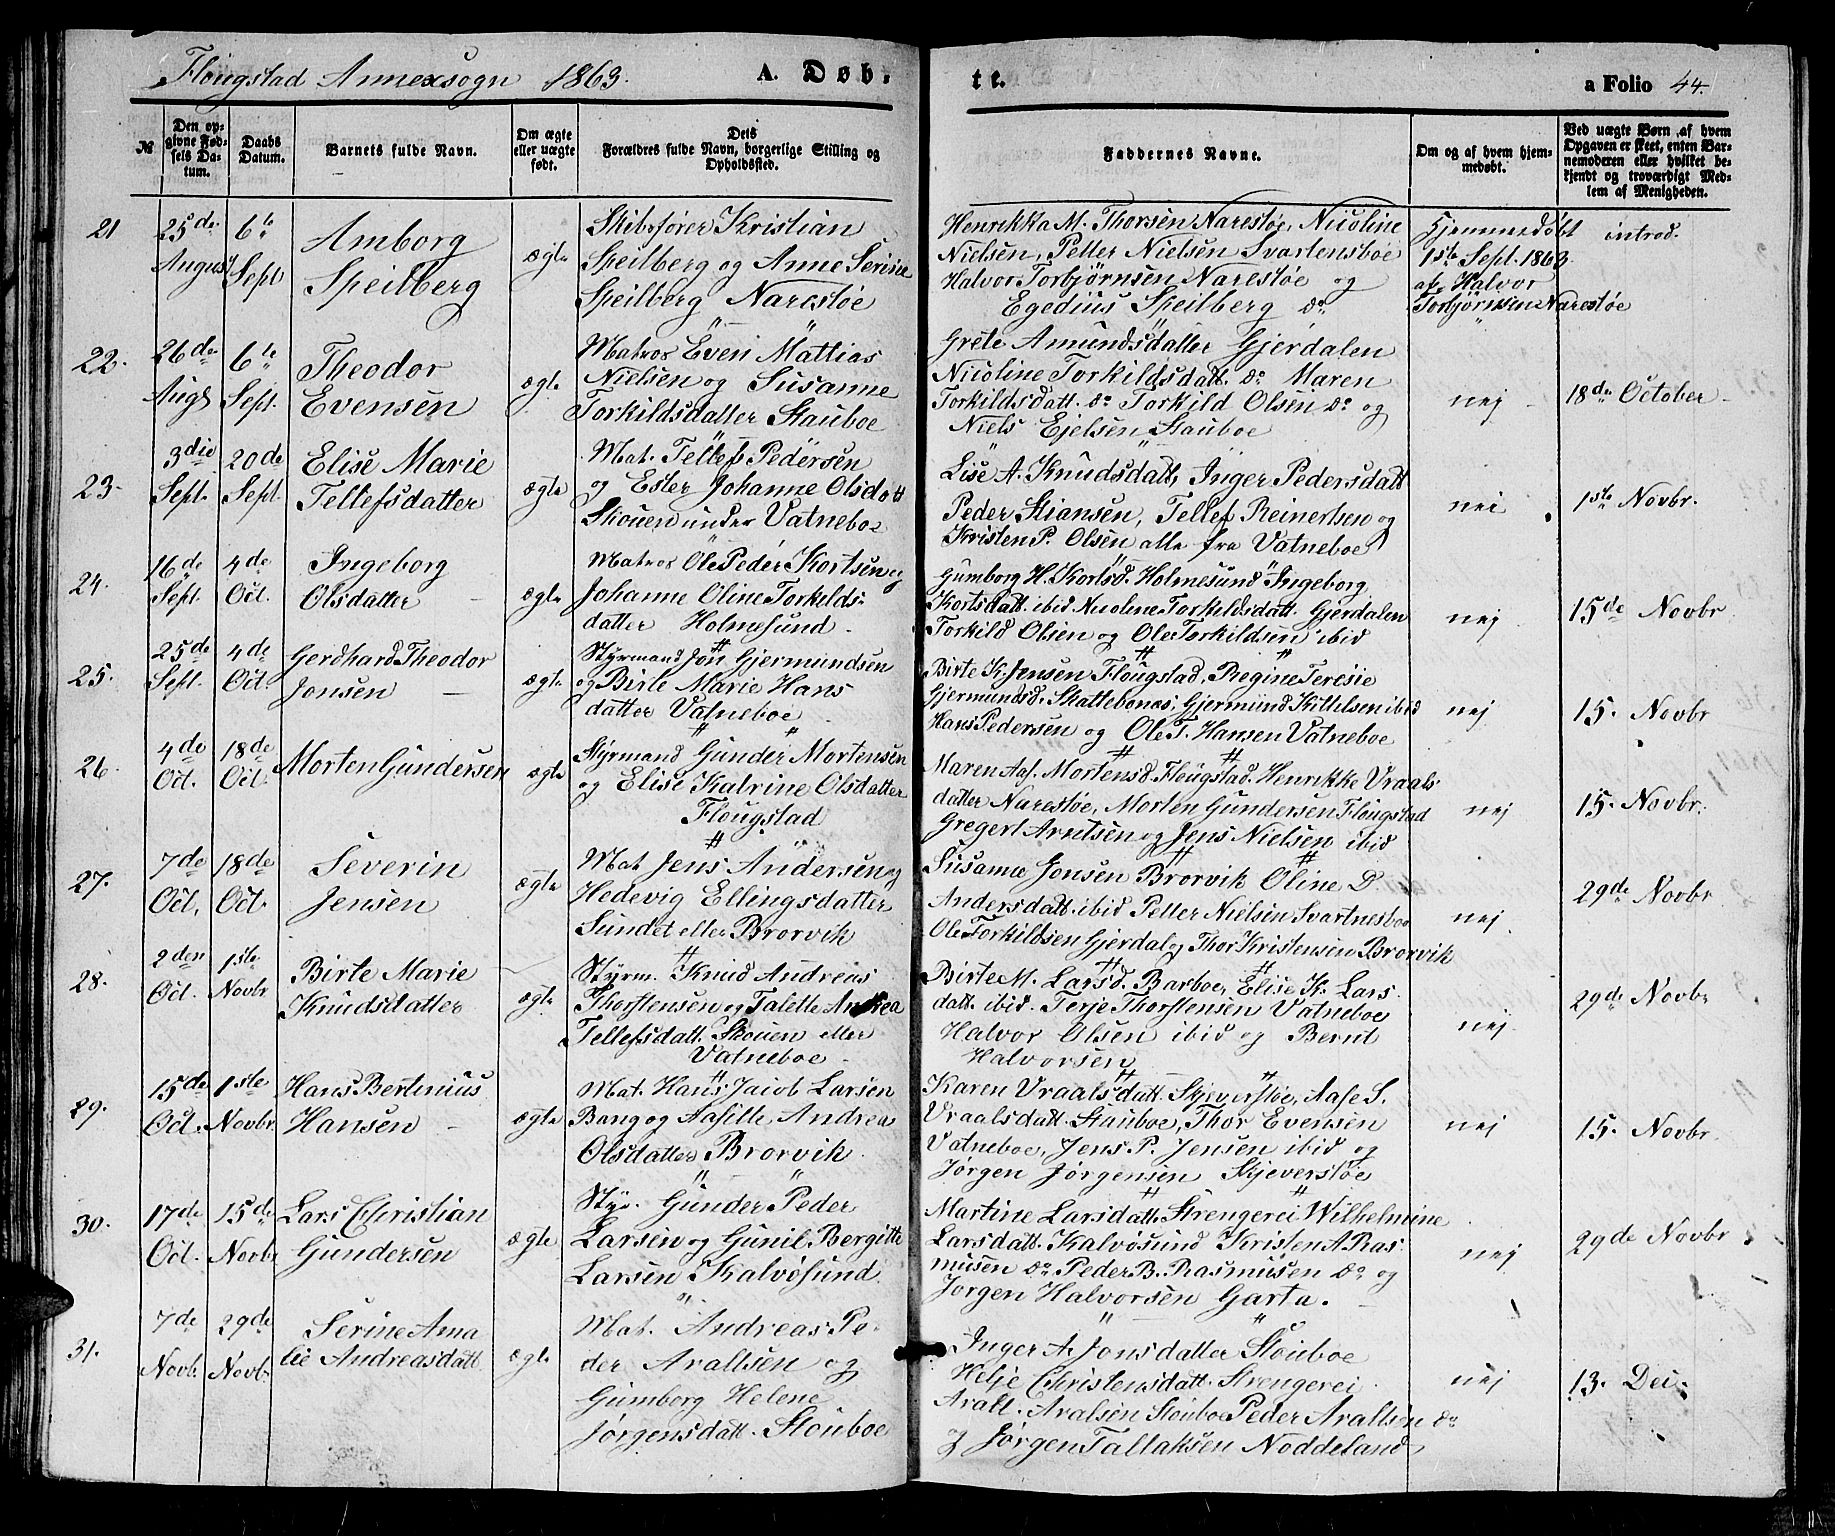 Flougstad Annexsogn 1863.
A. Døb-
te.
a Folio 44.
№
Den op-
givne Fød-
sels Da-
tum.
Daabs
Datum.
Barnets fulde Navn.
Om ægte
eller uægte
født.
Dets
Forældres fulde Navn, borgerlige Stilling og
Opholdssted.
Faddernes Navne.
Om og af hvem hjem-
medøbt.
Ved uægte Børn, af hvem
Opgaven er skeet, enten Bar-
nemoderen eller hvilket be-
kjendt og troværdigt Med-
lem af Menigheden.
21
25de
August
6te
Sept
Amborg
Speilberg
ægte
Skibsfører Kristian
Speilberg og Anne Serine
Speilberg Narestøe
Henrikka M. Thorsen Narestøe, Nicoline
Nielsen, Petter Nielsen Svartensboe
Halvor Torbjørnsen Narestøe og
Egedius Speilberg do
Hjemmedøbt
1ste Sept. 1863
af Halvor
Torbjørnsen Narestøe
introd.
22.
26de
Augs
6te
Sept.
Theodor
Evensen
ægte
Matros Even Mattias
Nielsen og Susanne
Torkildsdatter Stauboe
Grete Amundsdatter Gjerdalen
Nicoline Torkildsdatt. do Maren
Torkildsdatt. do Torkild Olsen do og
Niels Ejelsen Stauboe
nej
18de October
23.
3die
Sept.
20de
Sept.
Elise Marie
Tellefsdatter
ægte
Mat. Tellef Pedersen
og Ester Johanne Olsdatt
Skouen under Vatneboe
Lise A. Knudsdatt, Inger Pedersdatt
Peder Stiansen, Tellef Reinertsen og
Kristen P. Olsen alle fra Vatneboe
nei
1ste Novbr.
24.
16de
Sept.
4de
Oct.
Ingeborg
Olsdatter
ægte
Matros Ole Peder Kortsen og
Johanne Oline Torkilds-
datter Holmesund
Gumborg H. Kortsd. Holmesund Ingeborg
Kortsdatt. ibid Nicoline Torkildsdatt. Gjerdalen
Torkild Olsen og Ole Torkildsen ibid
nej
15de Novbr
25.
25de
Sept.
4de
Oct.
Gerdhard Theodor
Jonsen
ægte
Styrmand Jon Gjermundsen
og Birte Marie Hans
datter Vatneboe
Birte K. Jensen Flougstad, Regine Teresie
Gjermundsd. Skattebonas, Gjermund Kittelsen ibid
Hans Pedersen og Ole T. Hansen Vatneboe
nej
15. Novbr
26.
4de
Oct.
18de
Oct.
Morten Gundersen
ægte
Styrmand Gunder Mortensen
og Elise Katrine Olsdatter
Flougstad
Maren Aas. Mortensd. Flougstad. Henrikke Vraals
datter Narestøe, Morten Gundersen Flougstad
Gregert Arntsen og Jens Nielsen ibid
nej
15. Novbr.
27.
7de
Oct.
18de
Oct.
Severin
Jensen
ægte
Mat Jens Andersen og
Hedevig Ellingsdatter
Sundet eller Brorvik
Susanne Jonsen Brorvik Oline D.
Andersdatt. ibid Petter Nielsen Svartnesboe
Ole Torkildsen Gjerdal og Thor Kristensen Brorvik
nej
29de Novbr
28.
2den
Oct.
1ste
Novbr
Birte Marie
Knudsdatter
ægte
Styrm. Knud Andreas
Thorstensen og Talette Andrea
Tellefsdatt. Skouen eller
Vatneboe
Birte M. Larsd. Barboe, Elise K. Lars
datt. ibid. Terje Thorstensen Vatneboe
Halvor Olsen ibid og Bernt
Halvorsen
nej
29de Novbr
29.
15de
Oct.
1ste
Novbr.
Hans Bertinius
Hansen
ægte
Mat. Hans Jacob Larsen
Bang og Aasille Andrea
Olsdatter Brorvik
Karen Vraalsdatt. Skjeverstøe, Aase S.
Vraalsdatt. Stauboe, Thor Evensen
Vatneboe, Jens P. Jensen ibid og
Jørgen Jørgensen Skjeverstøe
nej
15. Novbr.
30.
17de
Oct.
15de
Novbr
Lars Christian
Gundersen
ægte
Styr. Gunder Peder
Larsen og Gunil Bergitte
Larsen Kalvøsund
Martine Larsdatt. Strengerei Wilhelmine
Larsdatt. Kalvøsund Kristen A. Ras
musen do Peder B. Rasmusen do og
Jørgen Halvorsen Garta.
nej
29de Novbr
31.
7de
Novb.
29de
Novb.
Serine Ama
lie Andreasdatt
ægte
Mat. Andreas Pe-
der Araltsen og
Gumborg Helene
Jørgensdatt. Stouboe
Inger A. Jonsdatter Stouboe
Helje Christensdatt. Strengerei
Aralt. Aralsen Stouboe Peder Araltsen do
og Jørgen Tallaksen Noddeland
nej
13. Dec.